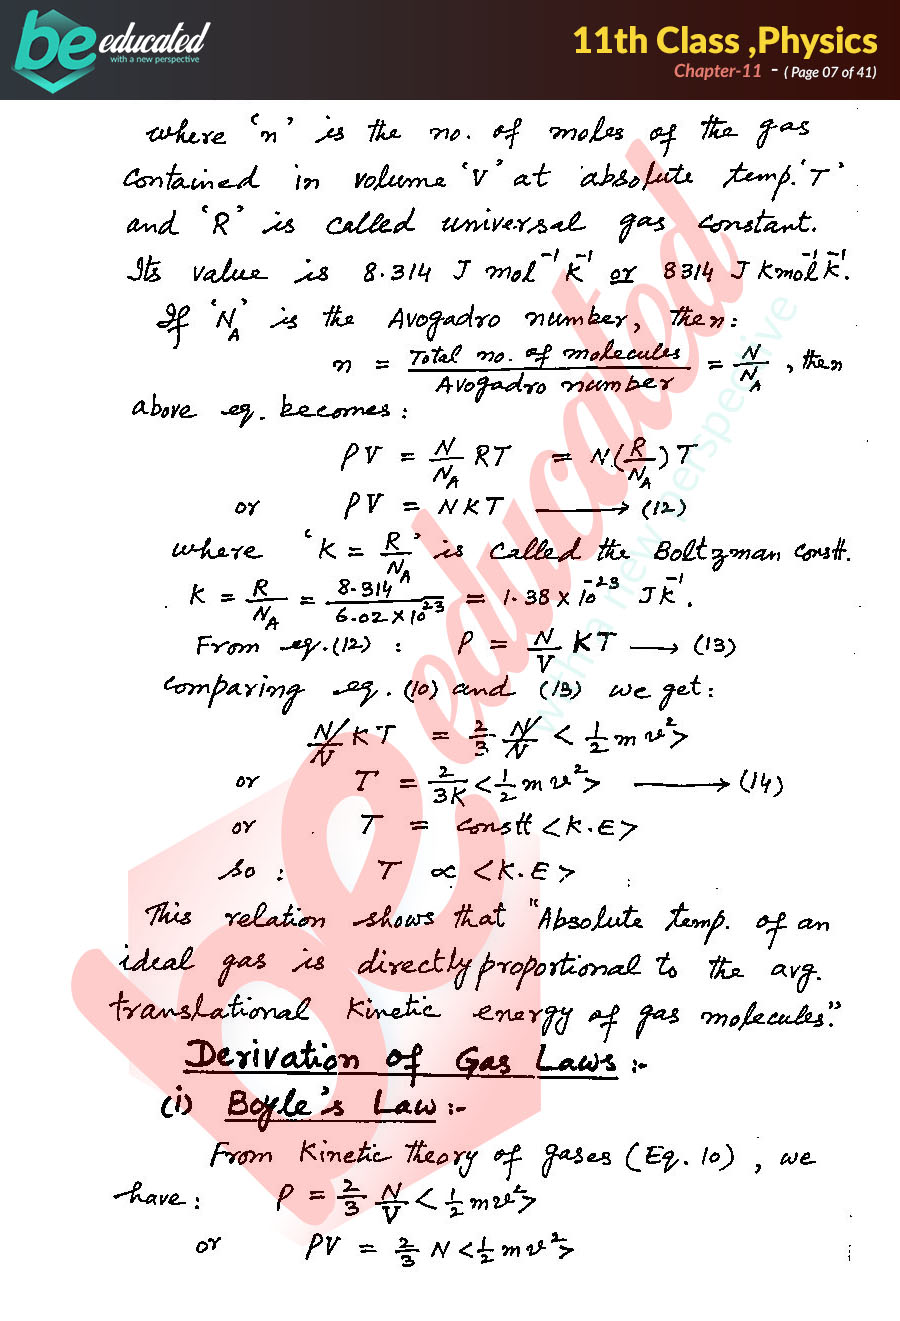 be educated
with a new perspective
11th Class ,Physics
Chapter-11 - ( Page 07 of 41)
where 'n' is the no. of moles of the gas
contained in volume 'V' at absolute temp. 'T'
and 'R' is called universal gas constant.
Its value is 8.314 J mol⁻¹ K⁻¹ or 8314 J Kmol⁻¹ K⁻¹.
If 'N_A' is the Avogadro number, then:
n = Total no. of molecules / Avogadro number = N/N_A , then
above eq. becomes:
PV = N/N_A RT = N(R/N_A)T
or PV = NKT ⟶ (12)
where 'K = R/N_A' is called the Boltzman constt.
K = R/N_A = 8.314 / 6.02×10²³ = 1.38×10⁻²³ JK⁻¹.
From eq.(12) : P = N/V KT ⟶ (13)
Comparing eq. (10) and (13) we get:
N/V KT = 2/3 N/V < 1/2 mv²>
or T = 2/3K <1/2 mv²> ⟶ (14)
or T = constt <K.E>
so : T ∝ <K.E>
This relation shows that "Absolute temp. of an
ideal gas is directly proportional to the avg.
translational kinetic energy of gas molecules."
Derivation of Gas Laws :-
(i) Boyle's Law :-
From Kinetic theory of gases (Eq. 10) , we
have : P = 2/3 N/V < 1/2 mv²>
or PV = 2/3 N <1/2 mv²>
be educated
with a new perspective